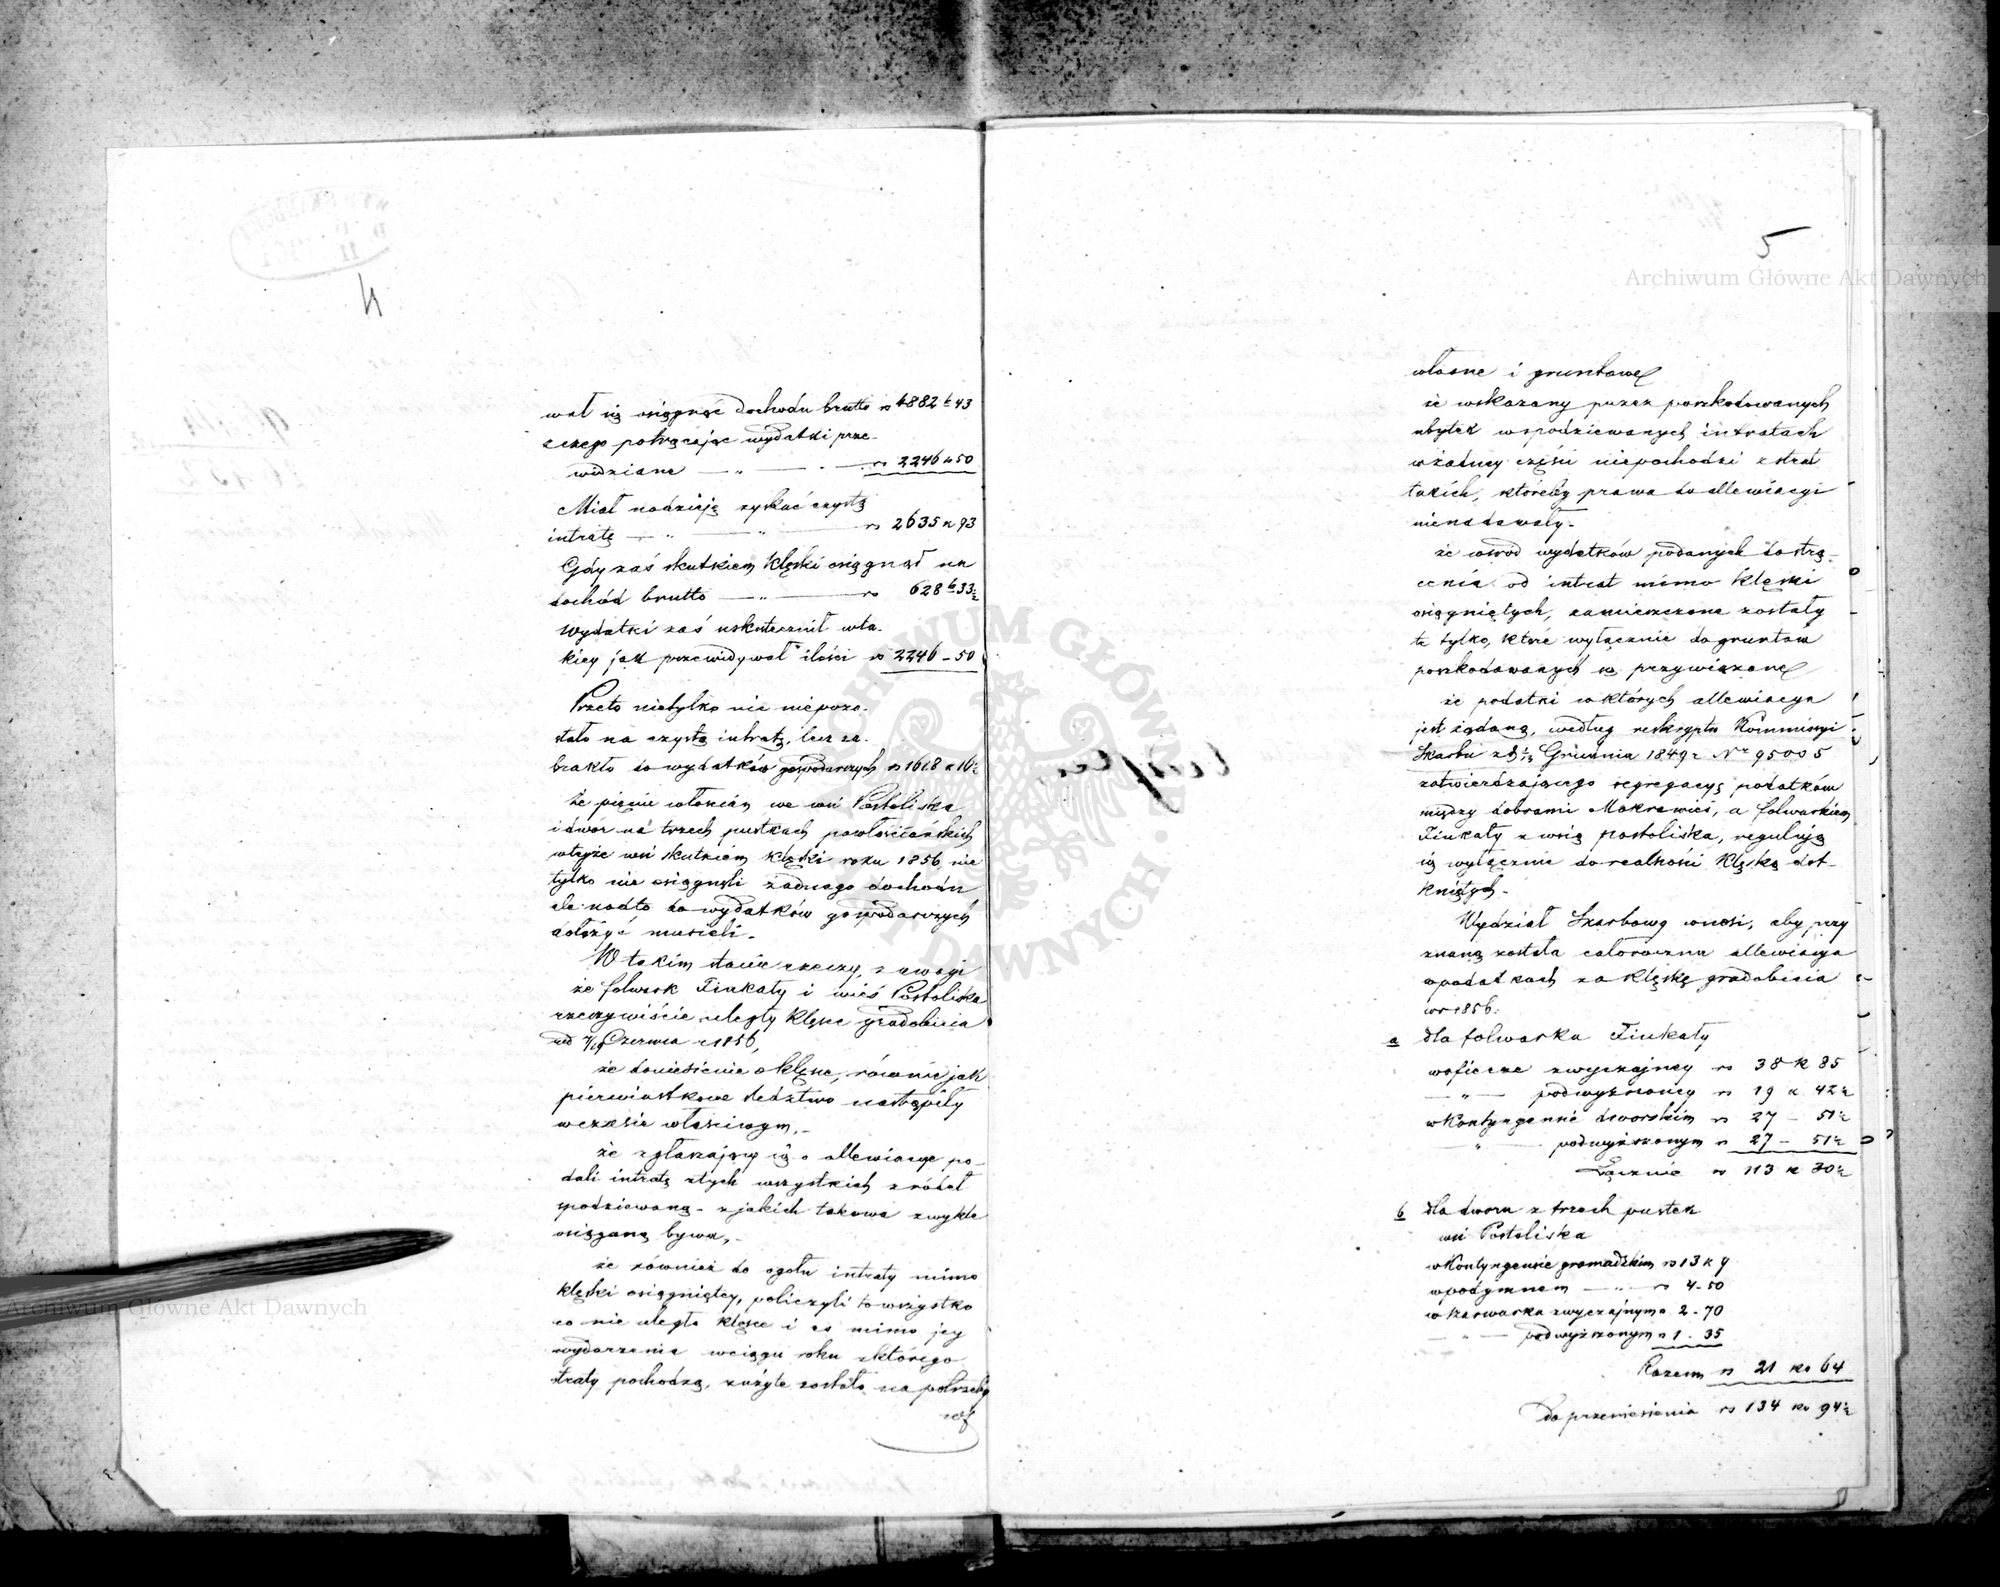 4
wał się osiągnąć dochodu brutto rs 4882 k 43
z czego potrącając wydatki prze-
widziane — „ — „ — rs 2246 k 50
Miał nadzieję zyskać czystą
intratę — „ — „ — rs 2635 k 93
Gdy zaś skutkiem klęski osiągnął na
dochód brutto — „ — rs 628 k 33½
Wydatki zaś uskutecznił w ta-
kiey jak przewidywał ilości rs 2246 – 50
Przeto nietylko nic niepozo-
stało na czystą intratę, lecz za-
brakło do wydatków gospodarczych rs 1618 k 16½
Że pięciu włościan we wsi Postoliska
i dwór na trzech pustkach powłościańskich
w tejże wsi skutkiem klęski roku 1856 nie
tylko nie osiągnęli żadnego dochodu
ale nadto do wydatków gospodarczych
dołożyć musieli.
W takim stanie rzeczy, z uwagi
że folwark Fiukały i wieś Postoliska
rzeczywiście uległy klęsce gradobicia
w d 7/19 Czerwca r 1856,
że doniesienie o klęsce, równie jak
pierwiastkowe śledztwo nastąpiły
w czasie właściwym, -
że zgłaszający się o allewiacye po-
dali intratę z tych wszystkich źródeł
spodziewaną - z jakich takowa zwykle
osiąganą bywa, -
że również do ogółu intraty mimo
klęski osiągniętey, policzyli to wszystko
co nie uległo klęsce i co mimo jey
wydarzenia w ciągu roku z którego
straty pochodzą, zużyte zostało na potrzeby
5
własne i gruntowe
że wskazany przez poszkodowanych
ubytek w spodziewanych intratach
w żadney części niepochodzi z strat
takich, któreby prawa do allewiacyi
nienadawały. -
że wśród wydatków podanych do strą-
cenia od intrat mimo klęski
osiągniętych, zamieszczone zostały
te tylko, które wyłącznie do gruntów
poszkodowanych są przywiązane
że podatki w których allewiacya
jest żądaną, według reskryptu Kommissyi
Skarbu z d 1/13 Grudnia 1849 r Nr 95005
zatwierdzającego segregacyę podatków
między dobrami Mokrawieś, a folwarkiem
Fiukały z wsią Postoliska, regulują
się wyłącznie do realności klęską dot-
kniętych. -
Wydział Skarbowy wnosi, aby przy
znaną została całoroczna allewiacya
w podatkach za klęskę gradobicia
w r 1856.
a dla folwarku Fiukały
w ofierze zwyczajney rs 38 k 85
— „ — podwyższoney rs 19 k 42½
w kontyngensie dworskim rs 27 – 51½
„ — podwyższonym rs 27 – 51½
Łącznie rs 113 k 30½
b dla dworu z trzech pustek
wsi Postoliska
w kontyngensie gromadzkim rs 13 k 9
w podymnem — „ — rs 4 - 50
w szarwarku zwyczajnym rs 2 - 70
— „ — podwyższonym rs 1 - 35
Razem rs 21 ko 64
Do przeniesienia rs 134 ko 94½
Archiwum Główne Akt Dawnych
Archiwum Główne Akt Dawnych
ARCHIWUM GŁÓWNE AKT DAWNYCH